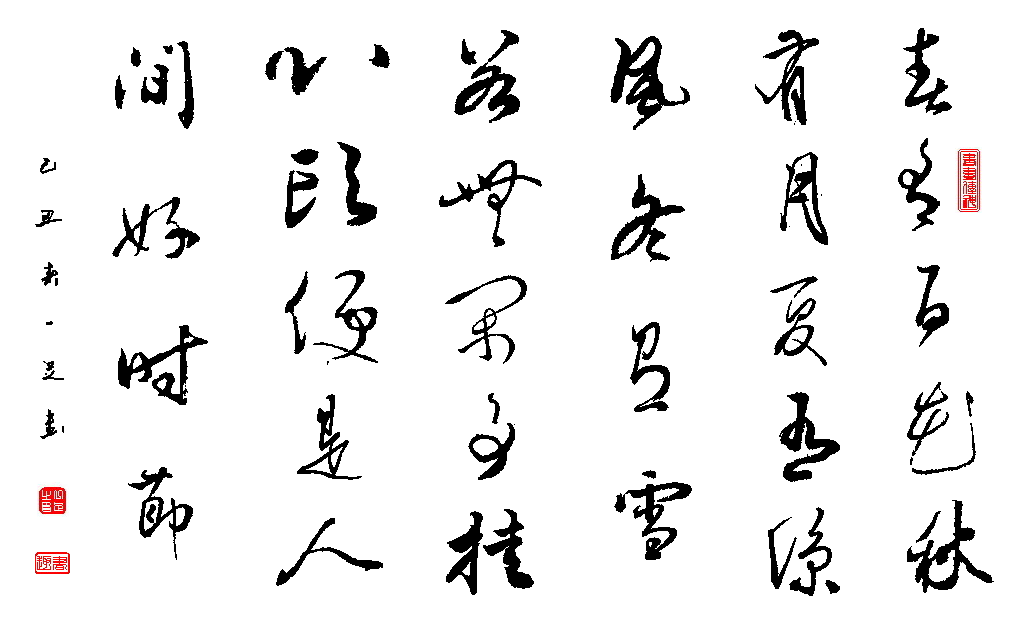 春有百花秋
有月夏有涼
風冬有雪
若無閑事挂
心頭便是人
間好时節
己丑春一書